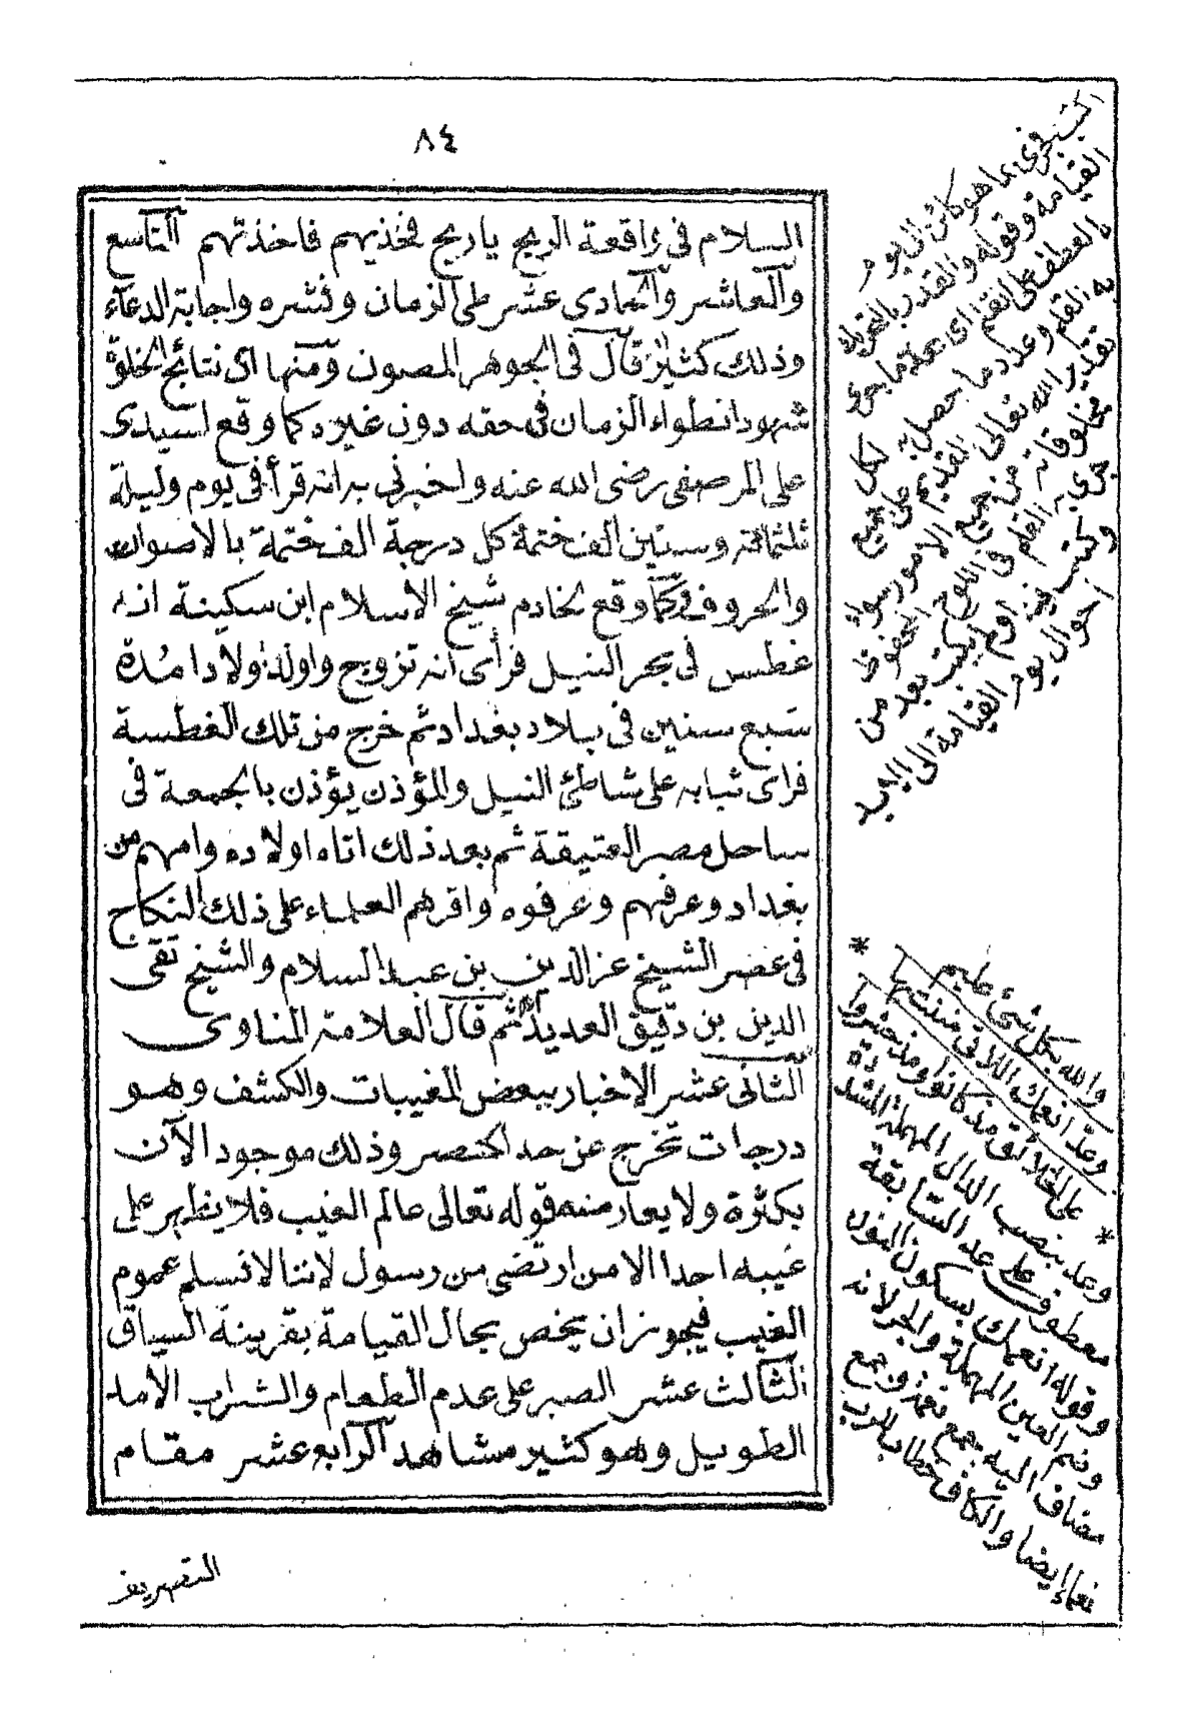 ٨٤
السلام في زاقعة الريح ياريح فخذيهم فاخذتهم التاسع
والعاشر والحادى عشر طى الزمان ونشره واجابة الدعاء
وذلك كثير قال فى الجوهر المصون ومنها اى نتائج الخلوة
شهود انطواء الزمان فى حقه دون غيره كما وقع لسيدى
على المرصفى رضى الله عنه واخبرنى به انه قرأ فى يوم وليلة
ثلثمائة وستين الف ختمة كل درجة الف ختمة بالاصوات
والحروف وكما وقع لخادم شيخ الاسلام ابن سكينة انه
غطس فى بحر النيل فرأى انه تزوج واولد ولادا مُدة
سبع سنين فى بلاد بغداد ثم خرج من تلك الغطسة
فراى ثيابه على شاطئ النيل والمؤذن يؤذن بالجمعة فى
ساحل مصر العتيقة ثم بعد ذلك اتاه اولاده وامهم من
بغداد وعرفهم وعرفوه واقرهم العلماء على ذلك النكاح
فى عصر الشيخ عز الدين بن عبد السلام والشيخ تقى
الدين بن دقيق العيد ثم قال العلامة المناوى
الثانى عشر الاخبار ببعض المغيبات والكشف وهو
درجات تخرج عن حد الحصر وذلك موجود الآن
بكثرة ولا يعارضه قوله تعالى عالم الغيب فلا يظهر على
غيبه احدا الا من ارتضى من رسول لاننا لا نسلم عموم
الغيب فيجوز ان يخص بحال القيامة بقرينة السياق
الثالث عشر الصبر على عدم الطعام والشراب الأمد
الطويل وهو كثير مشاهد الرابع عشر مقام
التصريف
بما هو كائن الى يوم
القيامة وقوله والقدر بالتحريك
بالعطف على القلم اى عدد ما جرى
به القلم وعدد ما حصل به
تقدير الله تعالى القديم على جميع
مخلوقاته من جميع الامور سواء
جرى به القلم فى اللوح المحفوظ
وكتب فيه اولم يكتب بعد من
احوال يوم القيامة الى الابد
والله بكل شئ عليم *
وعدّ انعمك اللاتى مننت بها
على الخلائق مذ كانوا ومذ حشروا
* وعد بنصب الدال المهملة المشددة
معطوف على عد السابقة
وقوله انعمك بسكون النون
وضم العين المهملة والجر لانه
مضاف اليه جمع نعمة وجمع
نعماء ايضا والكاف خطاب للرب